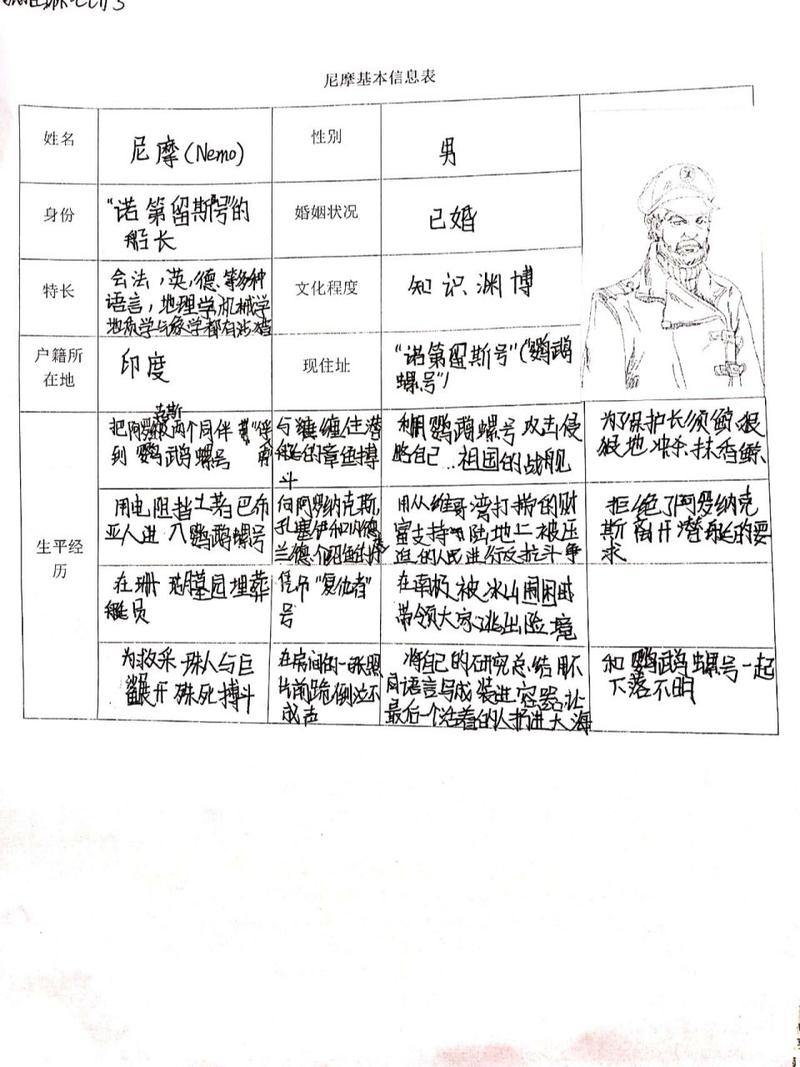 尼摩基本信息表
姓名
尼摩(Nemo)
性别
男
身份
"诺第留斯号"的
船长
婚姻状况
已婚
特长
会法,英,德等多种
语言,地理学,机械学
地质学与鱼学都有涉猎
文化程度
知识渊博
户籍所
在地
印度
现住址
"诺第留斯号"("鹦鹉
螺号")
生平经
历
克斯
把阿罗纳两个同伴
到鹦鹉螺号
与缠住潜
艇的章鱼搏
斗
利用鹦鹉螺号攻击侵
略自己祖国的战舰
为了保护长须鲸,狠
狠地冲杀抹香鲸
用电阻挡土著巴布
亚人进入鹦鹉螺号
向阿罗纳克斯,
孔塞伊和内德
兰德介绍鱼的
用从维哥湾打捞的财
富支持陆地上被压
迫的人民进行反抗斗争
拒绝了阿罗纳克
斯离开潜艇的要
求
在珊瑚墓园埋葬
艇员
凭吊"复仇者"
号
在南极被冰山围困时
带领大家逃出险境
为救采珠人与巨
鲨展开殊死搏斗
在房间的一张照
片前跪倒泣不
成声
将自己的研究总结用不
同语言写成装进容器让
最后一个活着的人扔进大海
和鹦鹉螺号一起
下落不明